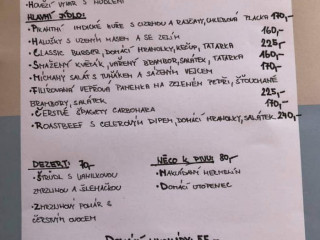 HOVĚZÍ VÝVAR S NUDLEMI
HLAVNÍ JÍDLO:
• PIKANTNÍ INDICKÉ KUŘE S CIZRNOU A RAJČATY, CHLEBOVÁ PLACKA 170,-
• HALUŠKY S UZENÝM MASEM A SE ZELÍM 160,-
• CLASSIC BURGER, DOMÁCÍ HRANOLKY, KEČUP, TATARKA 225,-
• SMAŽENÝ KVĚTÁK, VAŘENÝ BRAMBOR, SALÁTEK, TATARKA 160,-
• MÍCHANÝ SALÁT S TUŇÁKEM A SÁZENÝM VEJCEM 170,-
• FILÍROVANÁ VEPŘOVÁ PANENKA NA ZELENÉM PEPŘI, ŠŤOUCHANÉ
BRAMBORY, SALÁTEK 225,-
• ČERSTVÉ ŠPAGETY CARBONARA 170,-
• ROASTBEEF S CELEROVÝM DIPEM, DOMÁCÍ HRANOLKY, SALÁTEK 240,-
DEZERT: 70,-
• ŠTRÚDL S VANILKOVOU
ZMRZLINOU A ŠLEHAČKOU
• ZMRZLINOVÝ POHÁR S
ČERSTVÝM OVOCEM
NĚCO K PIVU: 80,-
• NAKLÁDANÝ HERMELÍN
• DOMÁCÍ UTOPENEC
55,-